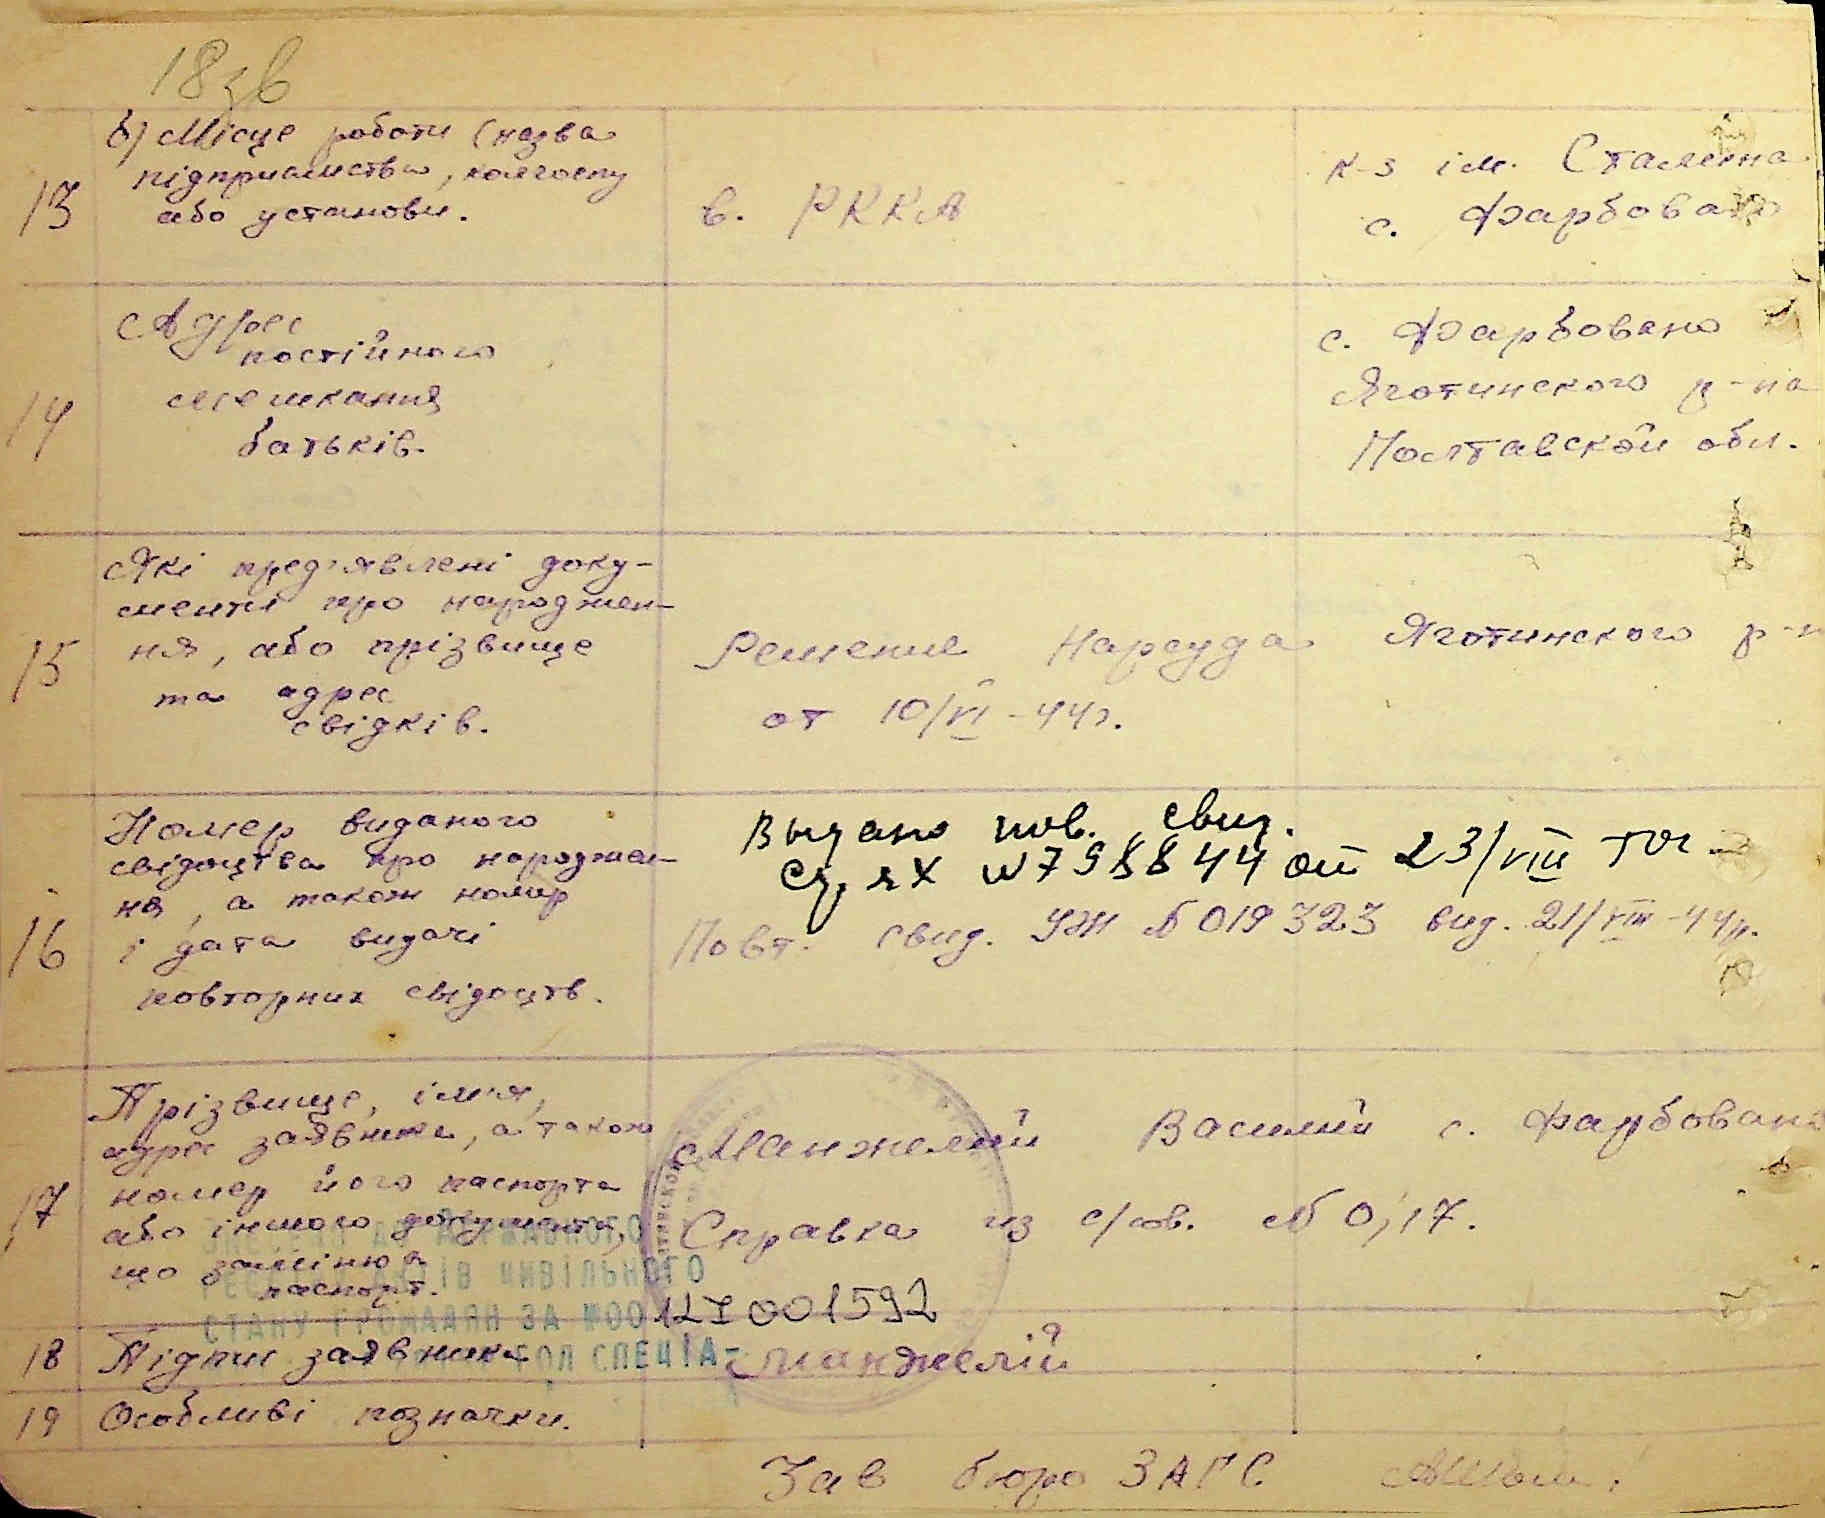 18зв
13
б) Місце роботи (назва
підприємства, колгоспу
або установи.
в. РККА
к-з ім. Сталина
с. Фарбовано
14
Адрес
постійного
мешкання
батьків.
с. Фарбовано
Яготинского р-на
Полтавской обл.
15
Які пред'явлені доку-
менти про народжен-
ня, або прізвище
та адрес
свідків.
Решение Нарсуда Яготинского р-н
от 10/VI-44г.
16
Номер виданого
свідоцтва про народжен-
ня, а також номер
і дата видачі
повторних свідоцтв.
Выдано пов. свид.
№798844 от 23/VIII
Повт. свид. УЖ №019323 вид. 21/VIII-44р.
17
Прізвище, ім'я,
адрес заявника, а також
номер його паспорта
або іншого документа,
що заміню а
паспорт.
Манжелий Василий с. Фарбовано
Справка из с/сов. №0,17.
ДЕРЖАВНОГО
ЦИВІЛЬНОГО
СТАНУ ГРОМАДЯН ЗА №00
001592
18
Підпис заявника
ГОЛ СПЕЦІА-
Манжелій
19
Особливі позначки.
Зав бюро ЗАГС